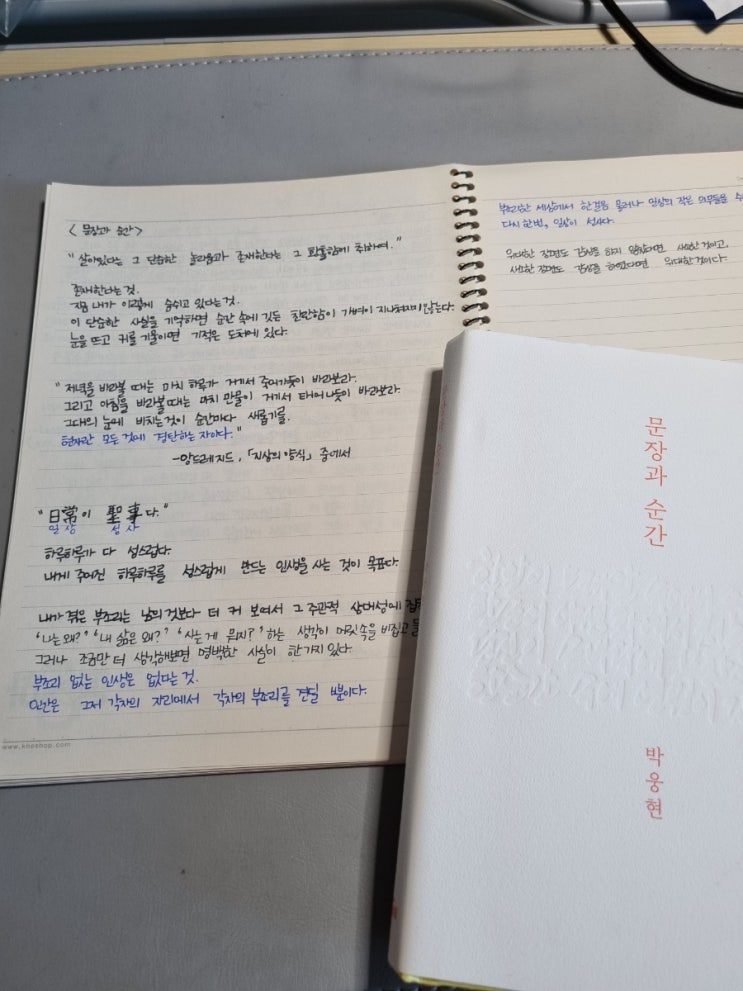 <문장과 순간>
"살아있다는 그 단순한 놀라움과 존재한다는 그 황홀함에 취하여."
존재한다는 것.
지금 내가 이렇게 숨쉬고 있다는 것.
이 단순한 사실을 기억하면 순간 속에 깃든 찬란함이 가벼이 지나쳐지지 않는다.
눈을 뜨고 귀를 기울이면 기적은 도처에 있다.
"저녁을 바라볼 때는 마치 하루가 거기서 죽어가듯이 바라보라.
그리고 아침을 바라볼 때는 마치 만물이 거기서 태어나듯이 바라보라.
그대의 눈에 비치는 것이 순간마다 새롭기를.
현자란 모든 것에 경탄하는 자이다."
-앙드레지드, 「지상의 양식」 중에서
"日常이 聖事다."
일상 성사
하루하루가 다 성스럽다.
내게 주어진 하루하루를 성스럽게 만드는 인생을 사는 것이 목표다.
내가 겪은 부조리는 남의 것보다 더 커 보여서 그 주관적 상대성에
'나는 왜?' '내 삶은 왜?' '사는 게 뭐지?' 하는 생각이 머릿속을 비집고
그러나 조금만 더 생각해보면 명백한 사실이 한 가지 있다.
부조리 없는 인생은 없다는 것.
인간은 그저 각자의 자리에서 각자의 부조리를 견딜 뿐이다.
www.khoshop.com
부조리한 세상에서 한걸음 물러나 일상의 작은 의무들을
다시 한번, 일상이 성사다.
위대한 장면도 감상을 하지 않았다면 사소한 것이고,
사소한 장면도 감상을 하였다면 위대한 것이다.
문장과 순간
박웅현